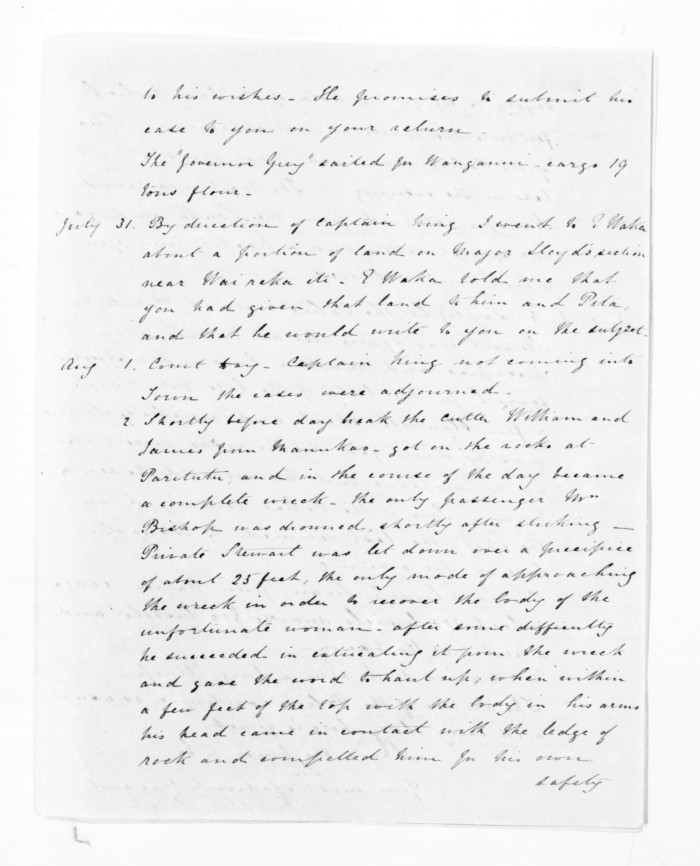 to his wishes - He promises to submit his
case to you on your return
The "Governor Grey" sailed for Wanganui - cargo 19
tons flour -
July 31. By direction of Captain King I went to E Waka
about a portion of land on Major Lloyd's section
near Wai reka iti - E Waka told me that
you had given that land to him and Pita,
and that he would write to you on the subject -
Aug 1. Court Day - Captain King not coming into
Town the cases were adjourned -
2. Shortly before day break the cutter "William and
James" from Manukao - got on the rocks at
Paritutu, and in the course of the day became
a complete wreck - the only passenger Mrs
Bishop was drowned, shortly after striking -
Private Stewart was let down over a precipice
of about 25 feet, the only mode of approaching
the wreck in order to recover the body of the
unfortunate woman - after some difficulty
he succeeded in extricating it from the wreck
and gave the word to haul up, when within
a few feet of the top with the body in his arms
his head came in contact with the ledge of
rock and compelled him for his own
safety